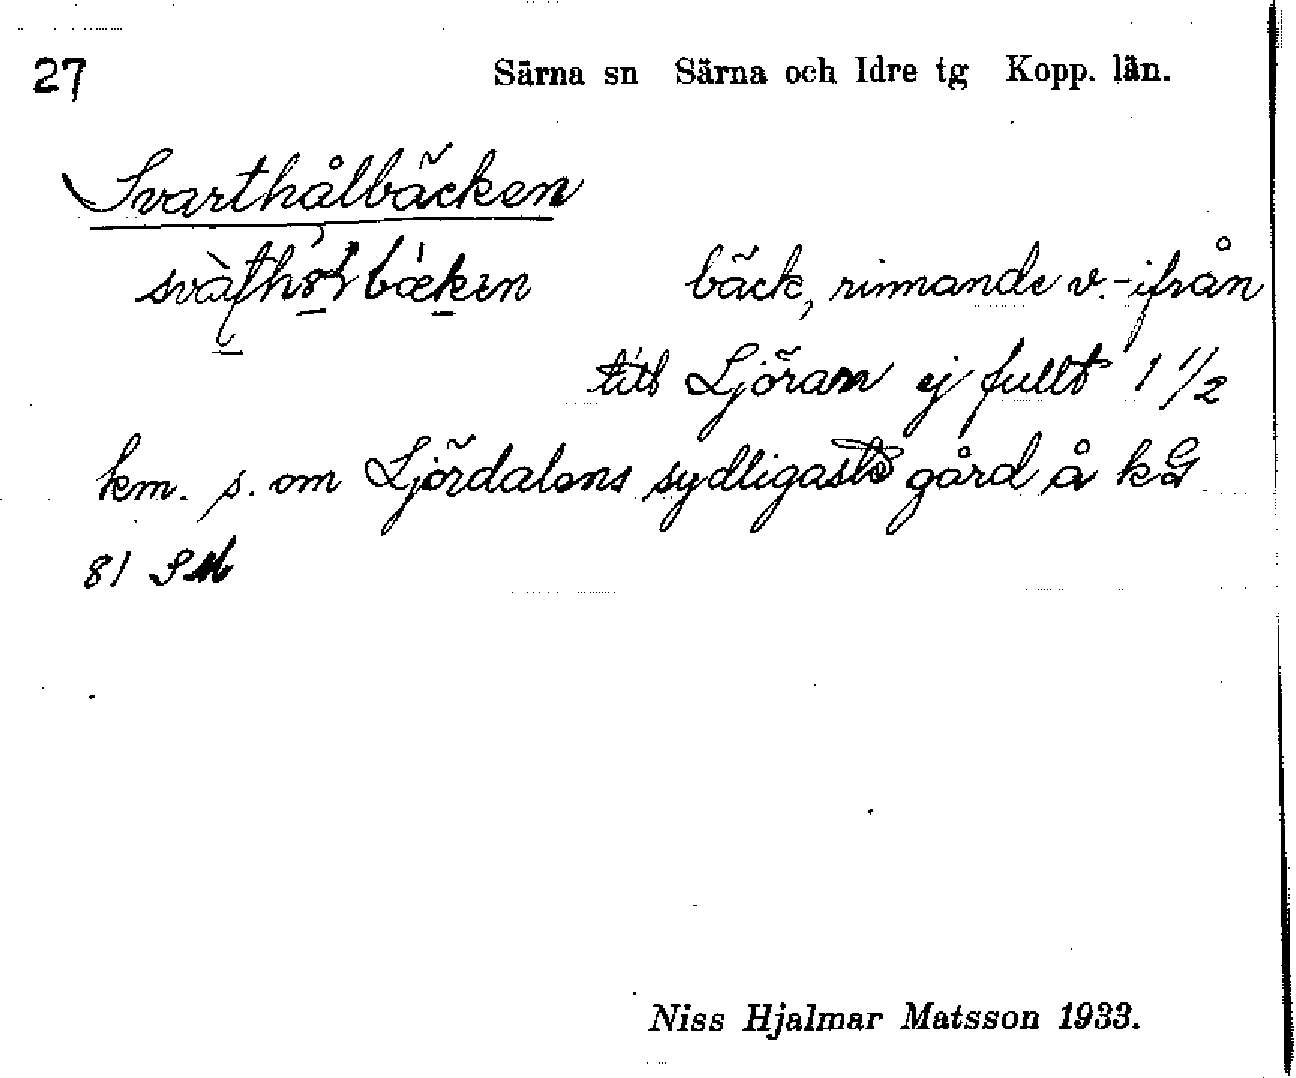 27 Särna sn Särna och Idre tg Kopp. län.
Svarthålbäcken
bäck, rinnande v.-ifrån
till Ljöran ej fullt 1 1/2
km. s. om Ljördalens sydligaste gård å kG
81 SM
Niss Hjalmar Matsson 1933.